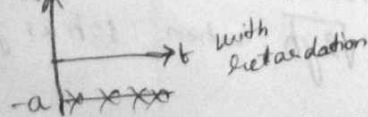 t
with
retardation
-a